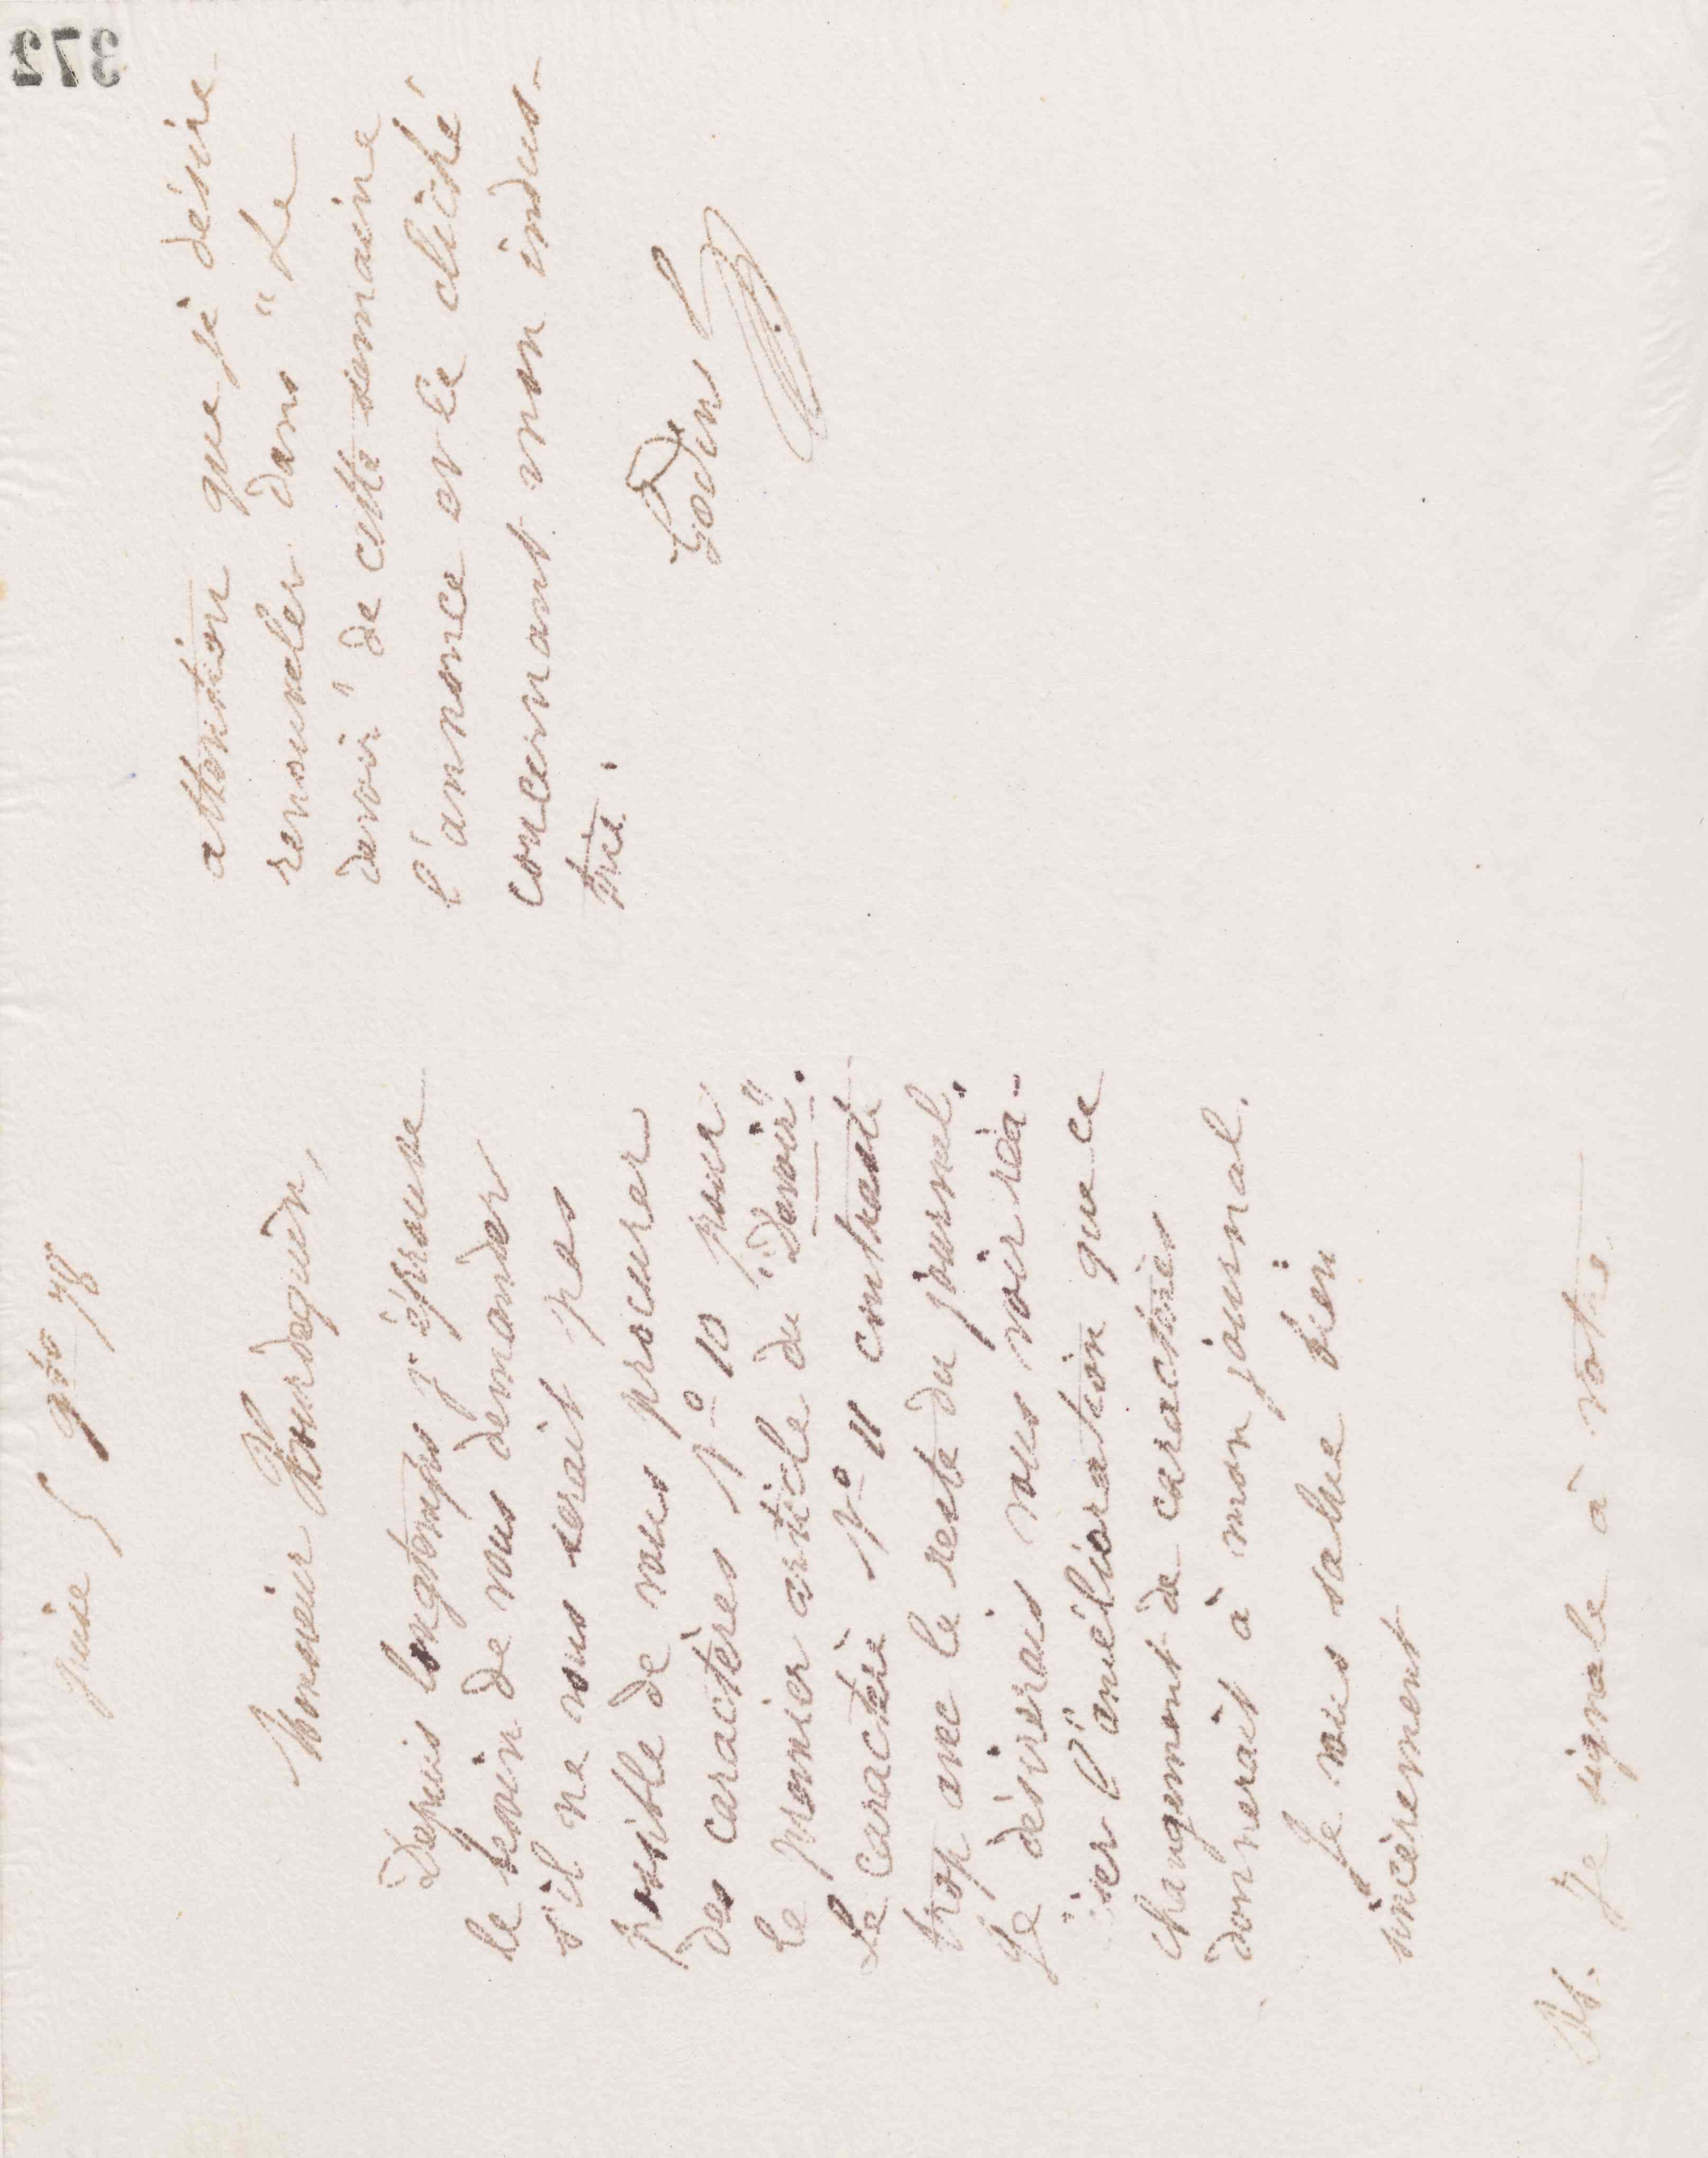 Guise 5 9bre 78
Monsieur Hourdequin,
Depuis longtemps j'éprouve
le besoin de vous demander
s'il ne vous serait pas
possible de vous procurer
des caractères No 10 pour
le premier article du "Devoir".
Le caractère No 11 contraste
trop avec le reste du journal.
Je désirerais vous voir réa-
iser l'amélioration que ce
changement de caractères
donnerait à mon journal.
Je vous salue bien
sincèrement
Ps. Je signale à votre
attention que je désire
renouveler dans "Le
devoir" de cette semaine
l'annonce et le cliché
concernant mon indus-
trie.
Godin
372